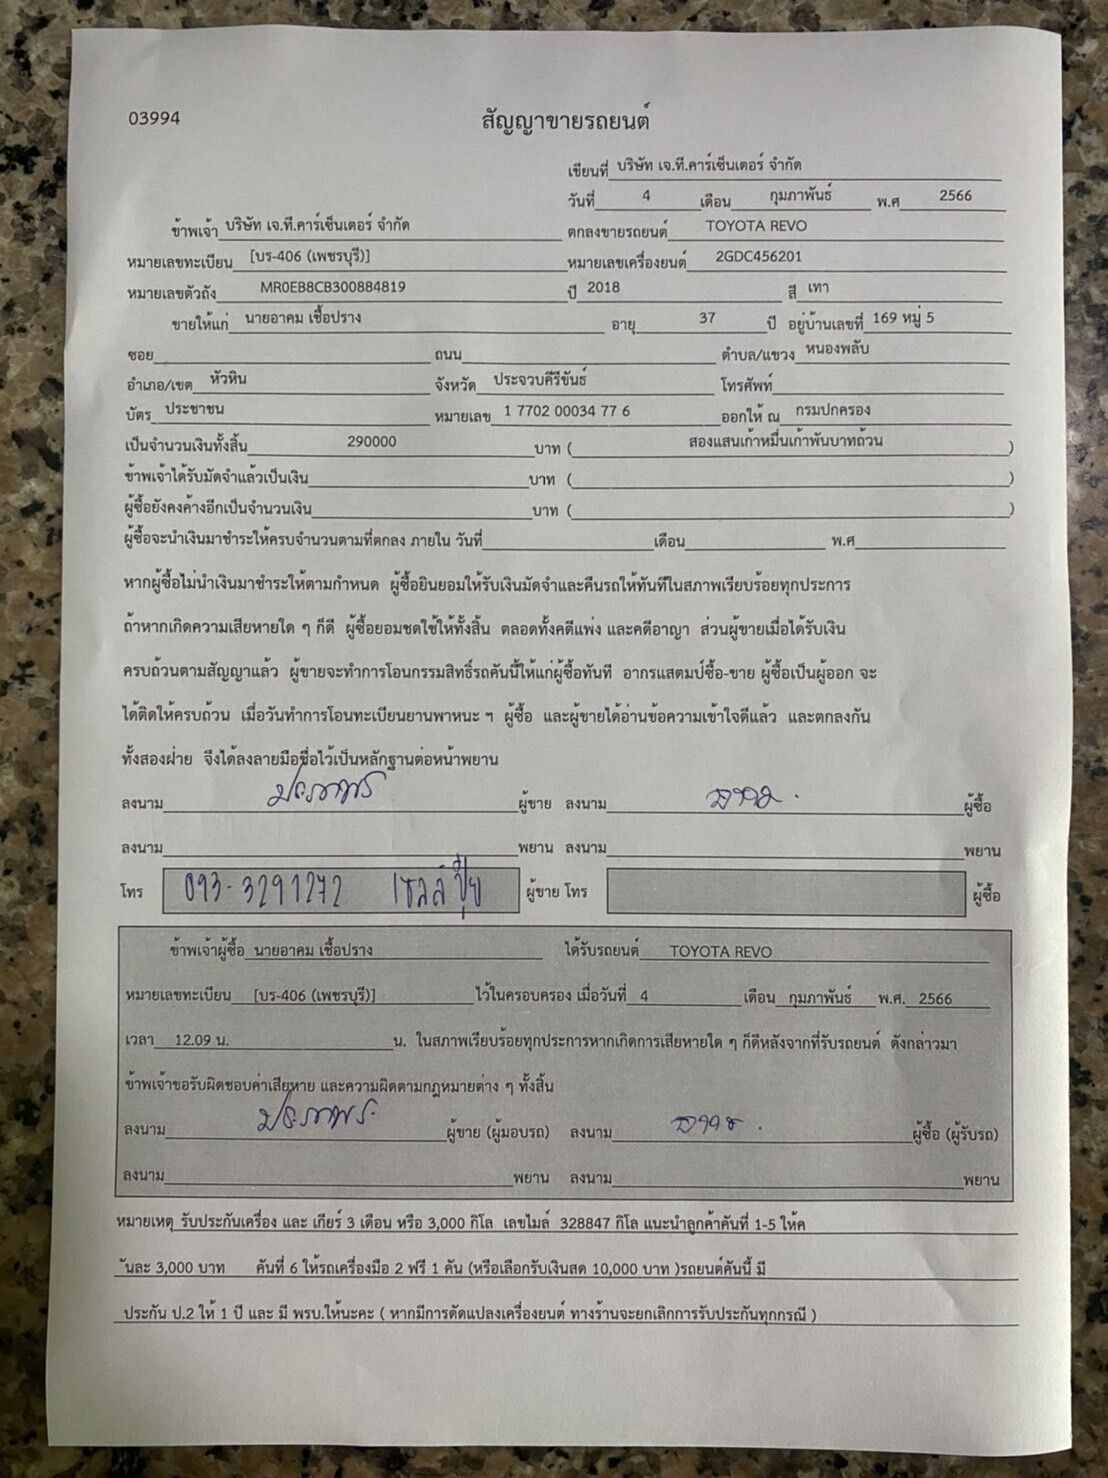 03994
สัญญาขายรถยนต์
เขียนที่ บริษัท เจ.ที.คาร์เซ็นเตอร์ จำกัด
วันที่ 4 เดือน กุมภาพันธ์ พ.ศ 2566
ข้าพเจ้า บริษัท เจ.ที.คาร์เซ็นเตอร์ จำกัด ตกลงขายรถยนต์ TOYOTA REVO
หมายเลขทะเบียน [บร-406 (เพชรบุรี)] หมายเลขเครื่องยนต์ 2GDC456201
หมายเลขตัวถัง MR0EB8CB300884819 ปี 2018 สี เทา
ขายให้แก่ นายอาคม เชื้อปราง อายุ 37 ปี อยู่บ้านเลขที่ 169 หมู่ 5
ซอย ถนน ตำบล/แขวง หนองพลับ
อำเภอ/เขต หัวหิน จังหวัด ประจวบคีรีขันธ์ โทรศัพท์
บัตร ประชาชน หมายเลข 1 7702 00034 77 6 ออกให้ ณ กรมปกครอง
เป็นจำนวนเงินทั้งสิ้น 290000 บาท ( สองแสนเก้าหมื่นเก้าพันบาทถ้วน )
ข้าพเจ้าได้รับมัดจำแล้วเป็นเงิน บาท ( )
ผู้ซื้อยังคงค้างอีกเป็นจำนวนเงิน บาท ( )
ผู้ซื้อจะนำเงินมาชำระให้ครบจำนวนตามที่ตกลง ภายใน วันที่ เดือน พ.ศ
หากผู้ซื้อไม่นำเงินมาชำระให้ตามกำหนด ผู้ซื้อยินยอมให้รับเงินมัดจำและคืนรถให้ทันทีในสภาพเรียบร้อยทุกประการ
ถ้าหากเกิดความเสียหายใด ๆ ก็ดี ผู้ซื้อยอมชดใช้ให้ทั้งสิ้น ตลอดทั้งคดีแพ่ง และคดีอาญา ส่วนผู้ขายเมื่อได้รับเงิน
ครบถ้วนตามสัญญาแล้ว ผู้ขายจะทำการโอนกรรมสิทธิ์รถคันนี้ให้แก่ผู้ซื้อทันที อากรแสตมป์ซื้อ-ขาย ผู้ซื้อเป็นผู้ออก จะ
ได้ติดให้ครบถ้วน เมื่อวันทำการโอนทะเบียนยานพาหนะ ฯ ผู้ซื้อ และผู้ขายได้อ่านข้อความเข้าใจดีแล้ว และตกลงกัน
ทั้งสองฝ่าย จึงได้ลงลายมือชื่อไว้เป็นหลักฐานต่อหน้าพยาน
ลงนาม ประภาพร ผู้ขาย ลงนาม อาคม ผู้ซื้อ
ลงนาม พยาน ลงนาม พยาน
โทร 093-3291272 เซลล์ปุ้ย ผู้ขาย โทร ผู้ซื้อ
ข้าพเจ้าผู้ซื้อ นายอาคม เชื้อปราง ได้รับรถยนต์ TOYOTA REVO
หมายเลขทะเบียน [บร-406 (เพชรบุรี)] ไว้ในครอบครอง เมื่อวันที่ 4 เดือน กุมภาพันธ์ พ.ศ. 2566
เวลา 12.09 น. น. ในสภาพเรียบร้อยทุกประการหากเกิดการเสียหายใด ๆ ก็ดีหลังจากที่รับรถยนต์ ดังกล่าวมา
ข้าพเจ้าขอรับผิดชอบค่าเสียหาย และความผิดตามกฎหมายต่าง ๆ ทั้งสิ้น
ลงนาม ประภาพร ผู้ขาย (ผู้มอบรถ) ลงนาม อาคม ผู้ซื้อ (ผู้รับรถ)
ลงนาม พยาน ลงนาม พยาน
หมายเหตุ รับประกันเครื่อง และ เกียร์ 3 เดือน หรือ 3,000 กิโล เลขไมล์ 328847 กิโล แนะนำลูกค้าคันที่ 1-5 ให้ค
ันละ 3,000 บาท คันที่ 6 ให้รถเครื่องมือ 2 ฟรี 1 คัน (หรือเลือกรับเงินสด 10,000 บาท )รถยนต์คันนี้ มี
ประกัน ป.2 ให้ 1 ปี และ มี พรบ.ให้นะคะ ( หากมีการดัดแปลงเครื่องยนต์ ทางร้านจะยกเลิกการรับประกันทุกกรณี )